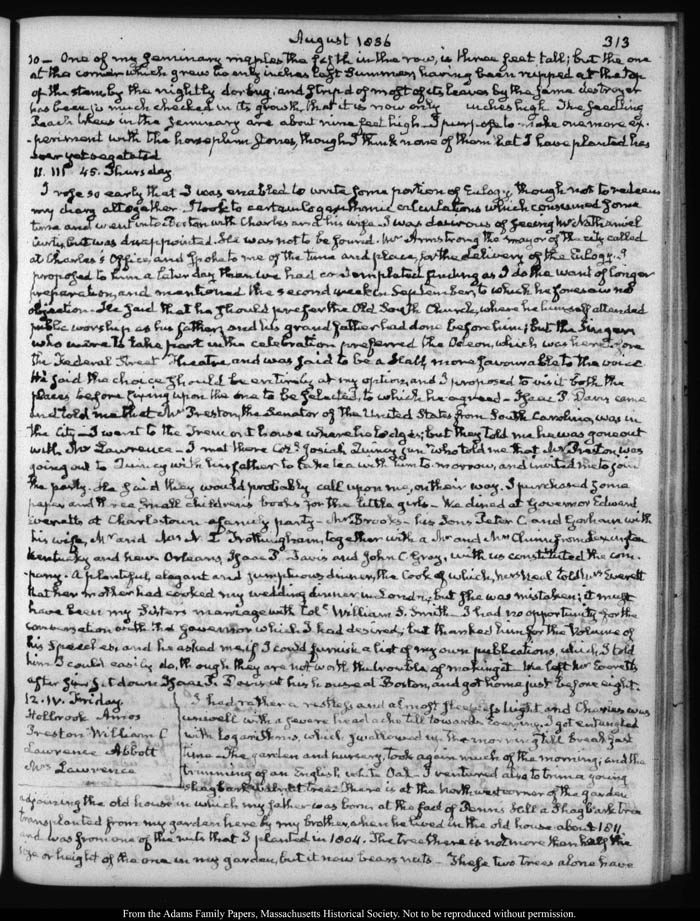 August 1836 313
10 — One of my Seminary maples the fifth in the row, is three feet tall; but the one
at the corner which grew to only inches last Summer, having been nipped at the top
of the stem by the nightly dorbug, and strip'd of most of its leaves by the same destroyer
has been so much checked in its growth, that it is now only inches high. The Seedling
Peach trees in the Seminary are about nine feet high — I purpose to make one more ex-
-periment with the horseplum stones, though I think none of them that I have planted has
ever yet vegetated
11. III 45. Thursday
I rose so early that I was enabled to write some portion of Eulogy, though not to redeem
my diary altogether. I took to certain logarithmic calculations which consumed some
time and went into Boston with Charles and his wife — I was desirous of seeing Mr Nathaniel
Curtis, but was disappointed. He was not to be found. Mr Armstrong the mayor of the city called
at Charles's Office, and spoke to me of the time and place, for the delivery of the Eulogy. I
proposed to him a later day than we had contemplated finding as I do the want of longer
preparation, and mentioned the second week in September, to which he foresaw no
objection — He said that he should prefer the Old South Church, where he himself attended
public worship as his father, and his grandfather had done before him; but the Singers
who were to take part in the celebration preferred the Odeon, which was heretofore
the Federal Street Theatre, and was said to be a Hall, more favourable to the voice
He said the choice should be entirely at my option, and I proposed to visit both the
places before fixing upon the one to be selected, to which he agreed — Isaac P. Davis came
and told me that Mr Preston, the Senator of the United States from South Carolina, was in
the City — I went to the Tremont house where he lodges; but they told me he was gone out
with Mr Lawrence — I met there Coll. Josiah Quincy junr. who told me that Mr Preston was
going out to Quincy with his father to take tea with him to-morrow, and invited me to join
the party. He said they would probably call upon me, on their way. I purchased some
paper and three small children's books for the little girls — We dined at Governor Edward
Everett's at Charlestown a family party — Mr Brooks — his Sons Peter C and Gorham with
his wife, Mr and Mrs N. L. Frothingham, together with a Mr and Mrs from Lexington
Kentucky and New Orleans, Isaac P. Davis and John C. Gray, with us constituted the com-
pany. A plentiful, elegant and sumptuous dinner, the Cook of which, Mrs Neal told Mrs Everett
that her mother had cooked my wedding dinner in London, but she was mistaken; it must
have been my Sister's marriage with Coll. William S. Smith — I had no opportunity for the
conversation with the Governor which I had desired; but thanked him for the Volume of
his Speeches, and he asked me, if I could furnish a list of my own publications, which, I told
him I could easily do, though they are not worth the trouble of making it. We left Mr Everett's
after six, set down Isaac P. Davis at his house at Boston, and got home just before eight.
12. IV. Friday.
Holbrook Amos
Preston William C
Lawrence Abbott
Mrs Lawrence
I had rather a restless and almost sleepless night and Charles was
unwell with a severe head ache till towards Evening. I got entangled
with logarithms, which swallowed up the morning till breakfast
time — The garden and nursery, took again much of the morning, and the
trimming of an English, white Oak — I ventured also to trim a young
Shagbark walnut tree. There is at the North west corner of the garden
adjoining the old house in which my father was born at the foot of Penn's hill a Shagbark tree
transplanted from my garden here by my brother, when he lived in the old house about 1811
and was from one of the nuts that I planted in 1804. The tree there is not more than half the
size or height of the one in my garden, but it now bears nuts — These two trees alone have
From the Adams Family Papers, Massachusetts Historical Society. Not to be reproduced without permission.